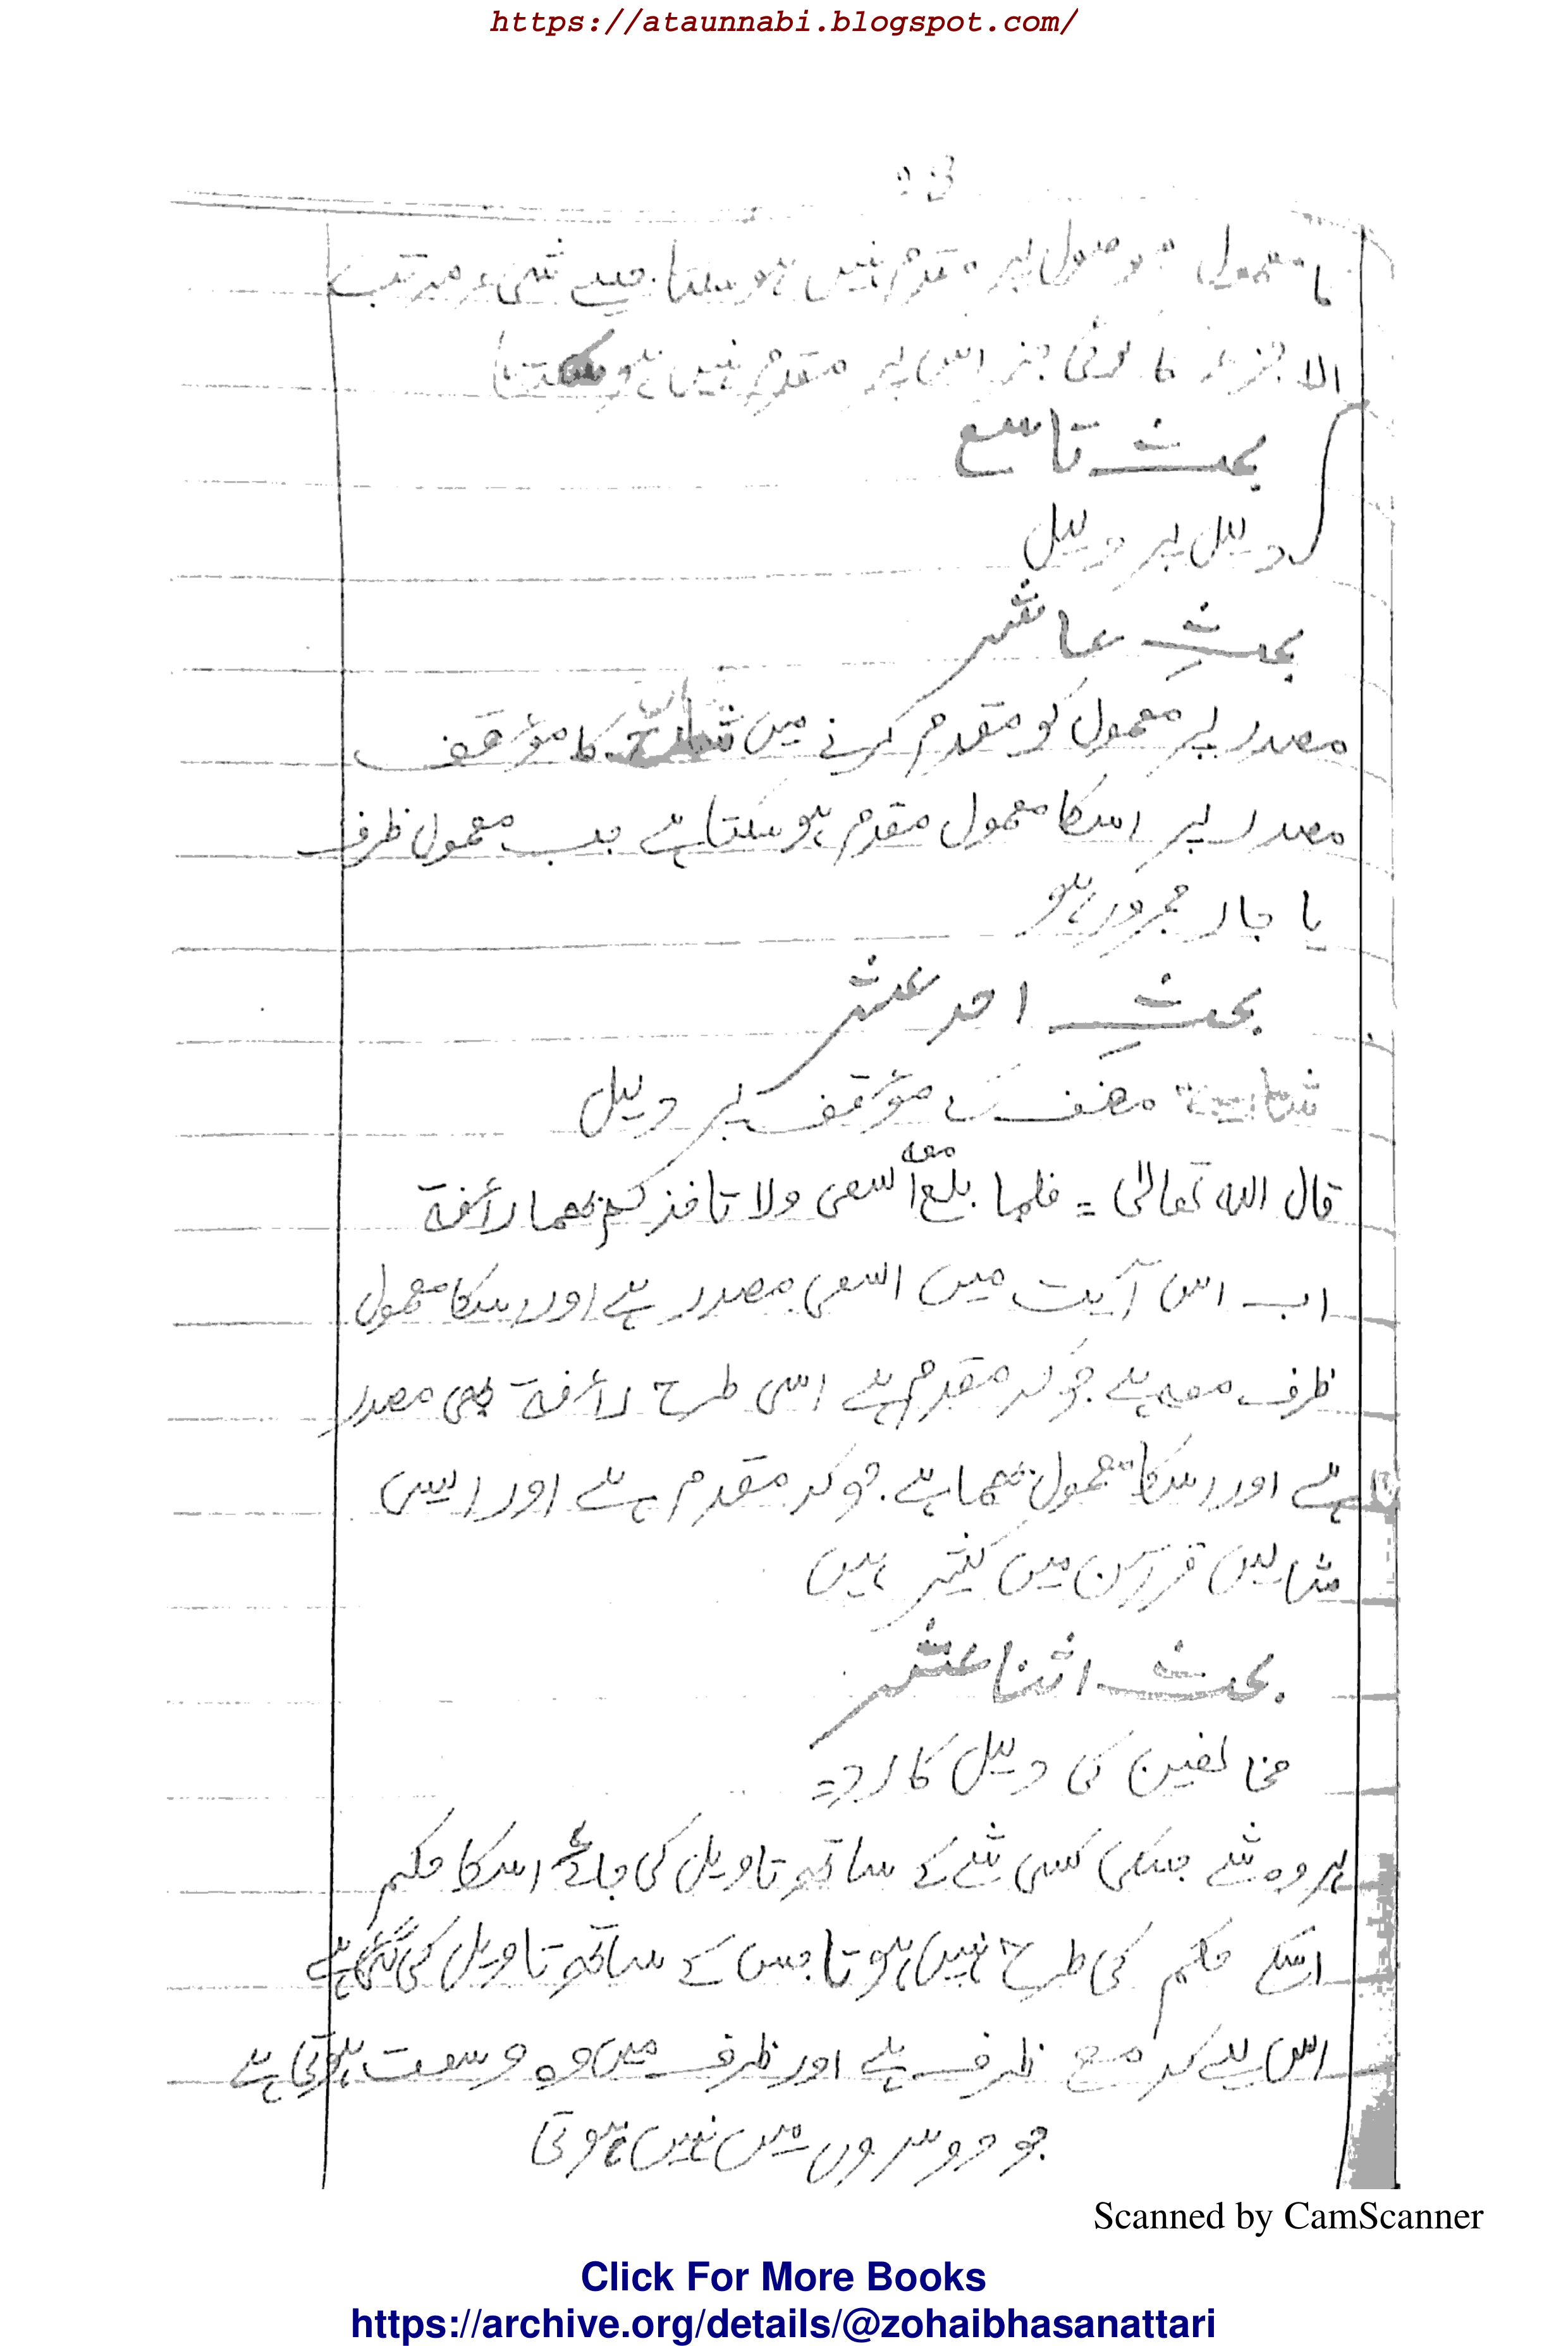 https://ataunnabi.blogspot.com/
کا معمول موصول پر مقدم نہیں ہو سکتا. جیسے شیء مرتب
الاجزاء کا کوئی جز اس پر مقدم نہیں ہو سکتا
بحث تاسع
دلیل پر دلیل
بحثِ عاشر
مصدر پر معمول کو مقدم کرنے میں شارح کا مؤقف
مصدر پر اسکا معمول مقدم ہو سکتا ہے جب معمول ظرف
یا جار مجرور ہو
بحثِ احد عشر
مصنف کے مؤقف پر دلیل
قال اللہ تعالیٰ = فلما بلغ معہ السعی ولا تاخذکم بھما رأفۃ
اب اس آیت میں السعی مصدر ہے اور اسکا معمول
ظرف معہ ہے جو کہ مقدم ہے اسی طرح رأفۃ بھی مصدر
ہے اور اسکا معمول بھما ہے. جو کہ مقدم ہے اور ایسی
مثالیں قرآن میں کثیر ہیں
بحث اثنا عشر
مخالفین کی دلیل کا رد =
ہر وہ شے جسکی کسی شے کے ساتھ تاویل کی جائے اسکا حکم
اسکے حکم کی طرح نہیں ہوتا جس کے ساتھ تاویل کی گئی ہے
اس لیے کہ مع ظرف ہے اور ظرف میں وہ وسعت ہوتی ہے
جو دوسروں میں نہیں ہوتی
Scanned by CamScanner
Click For More Books
https://archive.org/details/@zohaibhasanattari